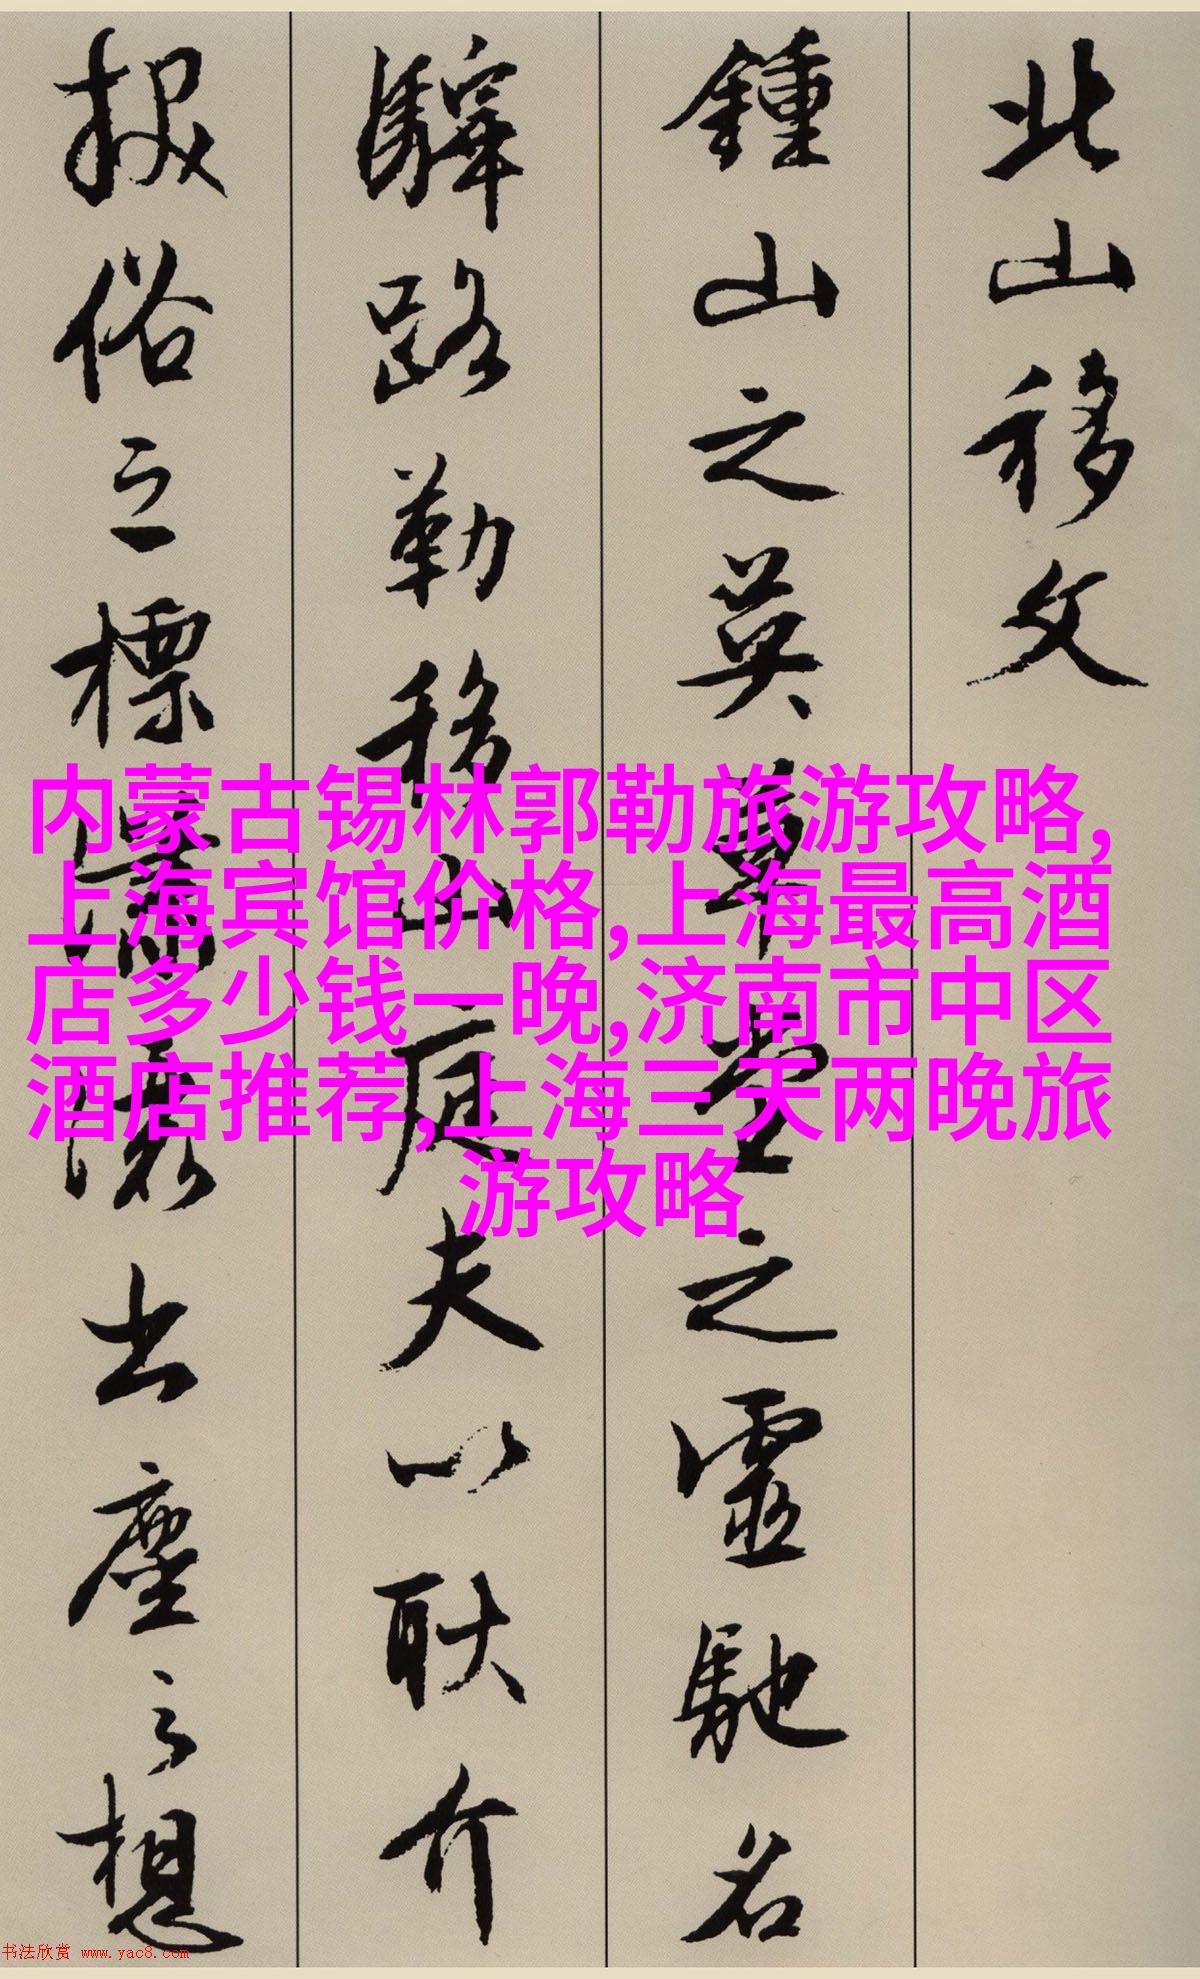 北山移文
鍾山之英草堂之靈馳名
驛路勒移山庭夫以耿介
拔俗之標瀟灑出塵之想
内蒙古锡林郭勒旅游攻略,
上海宾馆价格,上海最高酒
店多少钱一晚,济南市中区
酒店推荐,上海三天两晚旅
游攻略
书法欣赏 www.yac8.com